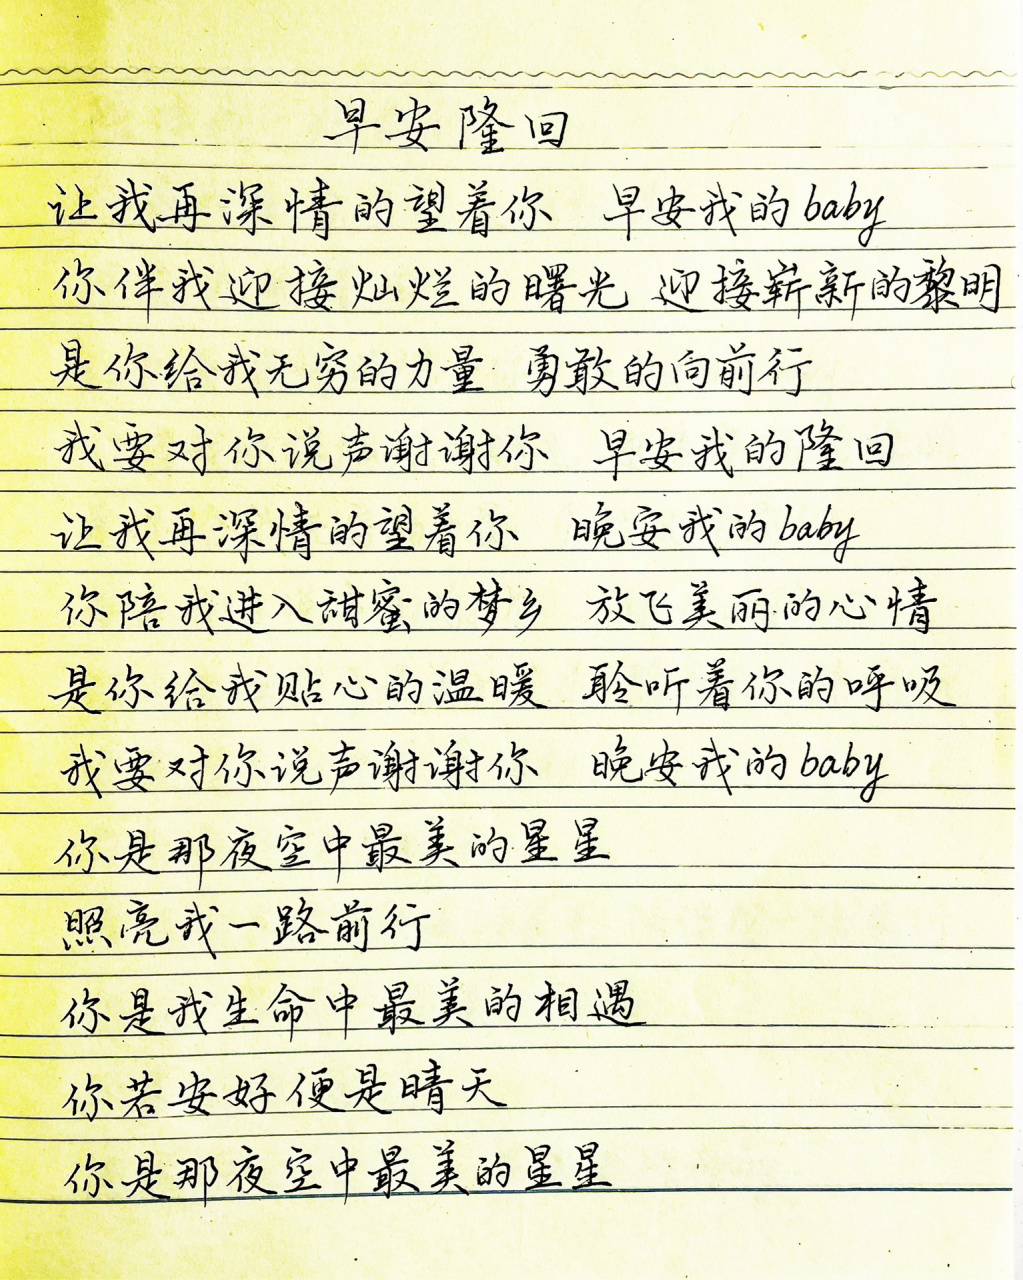 早安隆回
让我再深情的望着你 早安我的baby
你伴我迎接灿烂的曙光 迎接崭新的黎明
是你给我无穷的力量 勇敢的向前行
我要对你说声谢谢你 早安我的隆回
让我再深情的望着你 晚安我的baby
你陪我进入甜蜜的梦乡 放飞美丽的心情
是你给我贴心的温暖 聆听着你的呼吸
我要对你说声谢谢你 晚安我的baby
你是那夜空中最美的星星
照亮我一路前行
你是我生命中最美的相遇
你若安好便是晴天
你是那夜空中最美的星星